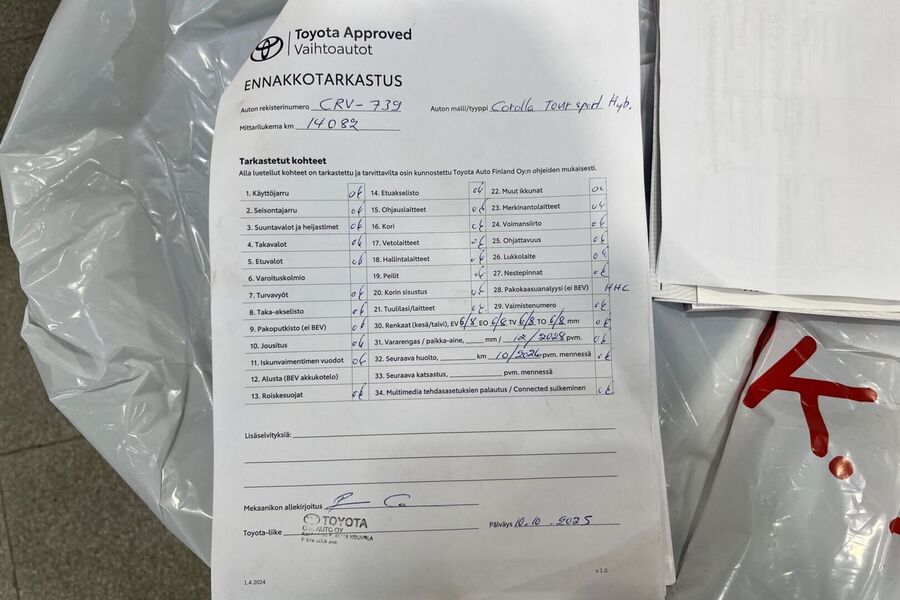 Toyota Approved
Vaihtoautot
ENNAKKOTARKASTUS
Auton rekisterinumero CRV-739 Auton malli/tyyppi Corolla Tour sport Hyb,
Mittarilukema km 14082
Tarkastetut kohteet
Alla luetellut kohteet on tarkastettu ja tarvittavilta osin kunnostettu Toyota Auto Finland Oy:n ohjeiden mukaisesti.
1. Käyttöjarru ok 14. Etuakselisto ok 22. Muut ikkunat ok
2. Seisontajarru ok 15. Ohjauslaitteet ok 23. Merkinantolaitteet ok
3. Suuntavalot ja heijastimet ok 16. Kori ok 24. Voimansiirto ok
4. Takavalot ok 17. Vetolaitteet ok 25. Ohjattavuus ok
5. Etuvalot ok 18. Hallintalaitteet ok 26. Lukkolaite ok
6. Varoituskolmio 19. Peilit ok 27. Nestepinnat ok
7. Turvavyöt ok 20. Korin sisustus ok 28. Pakokaasuanalyysi (ei BEV)
8. Taka-akselisto ok 21. Tuulilasi/laitteet ok 29. Valmistenumero ok
9. Pakoputkisto (ei BEV) ok 30. Renkaat (kesä/talvi), EV 6/8 EO 6/8 TV 6/8 TO 6/8 mm ok
10. Jousitus ok 31. Vararengas / paikka-aine, mm / 12/2028 pvm. ok
11. Iskunvaimentimen vuodot ok 32. Seuraava huolto, km 10/2026 pvm. mennessä ok
12. Alusta (BEV akkukotelo) 33. Seuraava katsastus, pvm. mennessä
13. Roiskesuojat ok 34. Multimedia tehdasasetuksien palautus / Connected sulkeminen ok
Lisäselvityksiä:
Mekaanikon allekirjoitus
Toyota-liike TOYOTA Päiväys 10.10.2025
AUTO OY
KOUVOLA
1.4.2024 v 1.0
K.